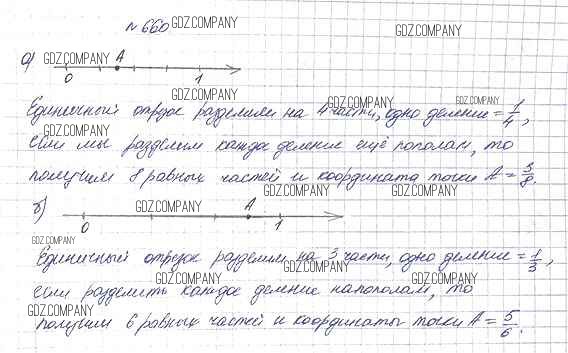 N 660
GDZ.COMPANY
GDZ.COMPANY
а) GDZ.COMPANY A
0 1
GDZ.COMPANY
Единичный отрезок разделили на 4 части, одно деление = 1/4,
GDZ.COMPANY GDZ.COMPANY
GDZ.COMPANY
если мы разделим каждое деление ещё пополам, то
получим 8 равных частей и координата точки A = 3/8.
GDZ.COMPANY GDZ.COMPANY
б) GDZ.COMPANY A
0 1
GDZ.COMPANY
Единичный отрезок разделили на 3 части, одно деление = 1/3,
GDZ.COMPANY GDZ.COMPANY GDZ.COMPANY
если разделить каждое деление напополам, то
GDZ.COMPANY
получим 6 равных частей и координаты точки A = 5/6.